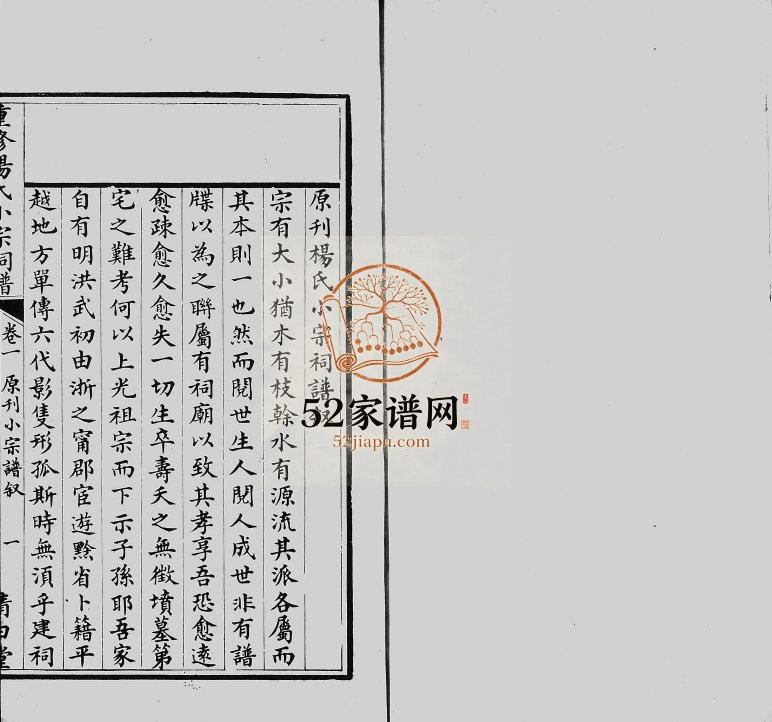 原刊楊氏小宗祠譜叙
宗有大小猶木有枝幹水有源流其派各屬而
其本則一也然而閱世生人閱人成世非有譜
牒以為之聯屬有祠廟以致其孝享吾恐愈遠
愈疎愈久愈失一切生卒壽夭之無徵墳墓第
宅之難考何以上光祖宗而下示子孫耶吾家
自有明洪武初由浙之甯郡宦遊黔省卜籍平
越地方單傳六代影隻形孤斯時無湏乎建祠
重修楊氏小宗祠譜
卷一 原刊小宗譜叙 一
清白堂
52家谱网
52jiapu.com